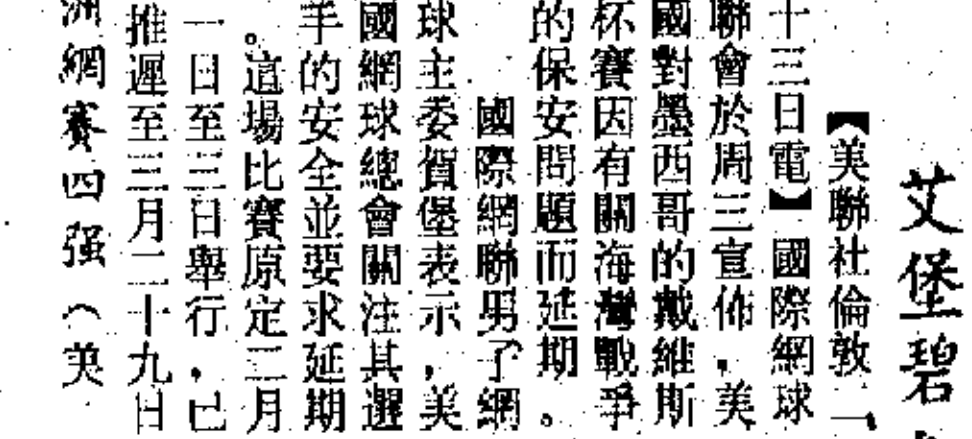 艾堡碧
【美聯社倫敦二
十三日電】國際網球
聯會於周三宣佈，美
國對墨西哥的戴維斯
杯賽因有關海灣戰爭
的保安問題而延期。
國際網聯男子網
球主委賀堡表示，美
國網球總會關注其選
手的安全並要求延期
。這場比賽原定二月
一日至三日舉行，已
推遲至三月二十九日
洲網賽四强（美